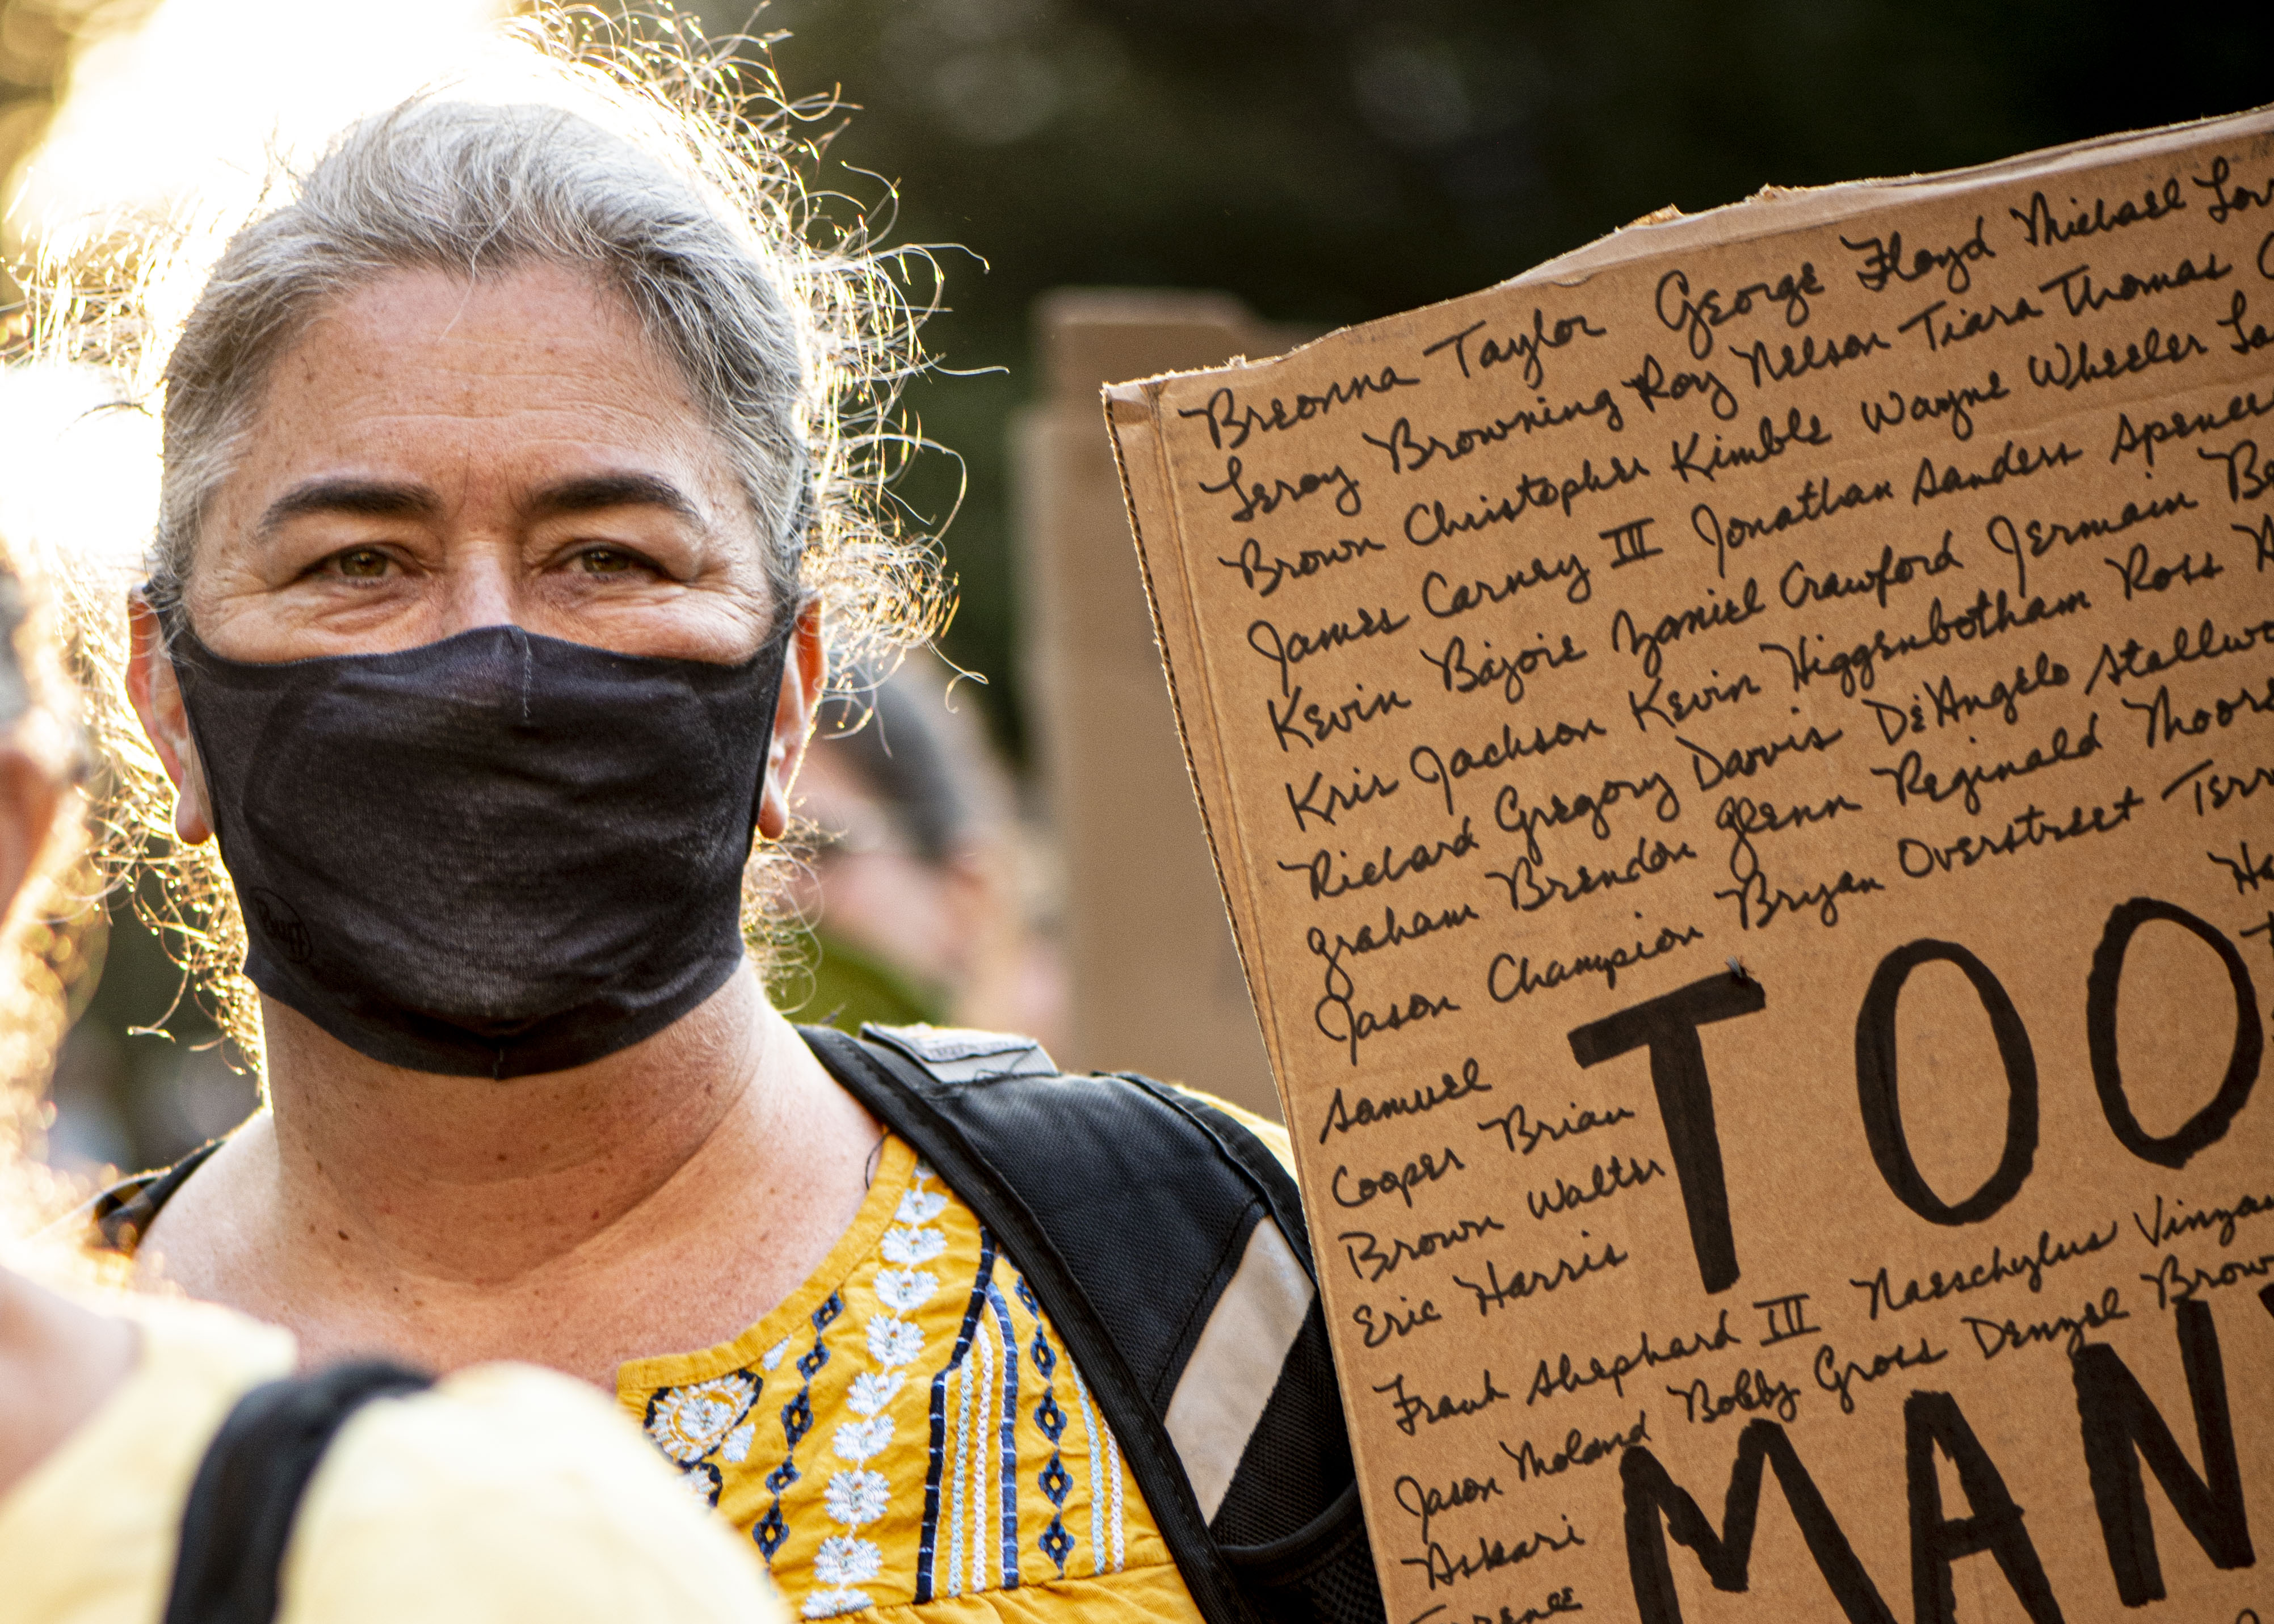 Breonna Taylor George Floyd Michael
Leroy Browning Roy Nelson Tiara Thomas
Brown Christopher Kimble Wayne Wheeler
James Carney III Jonathan Sanders Spencer
Kevin Bajoie Zamiel Crawford Jermain
Kris Jackson Kevin Higgenbotham Ross
Richard Gregory Davis DeAngelo
graham Brendon glenn Reginald Moore
Jason Champion Bryan Overstreet
TOO
Samuel
Cooper Brian
Brown Walter
Eric Harris
Frank Shephard III Naeschylus
Jason Moland Bobby Gross Denzel Brown
Askari
MAN
Buff